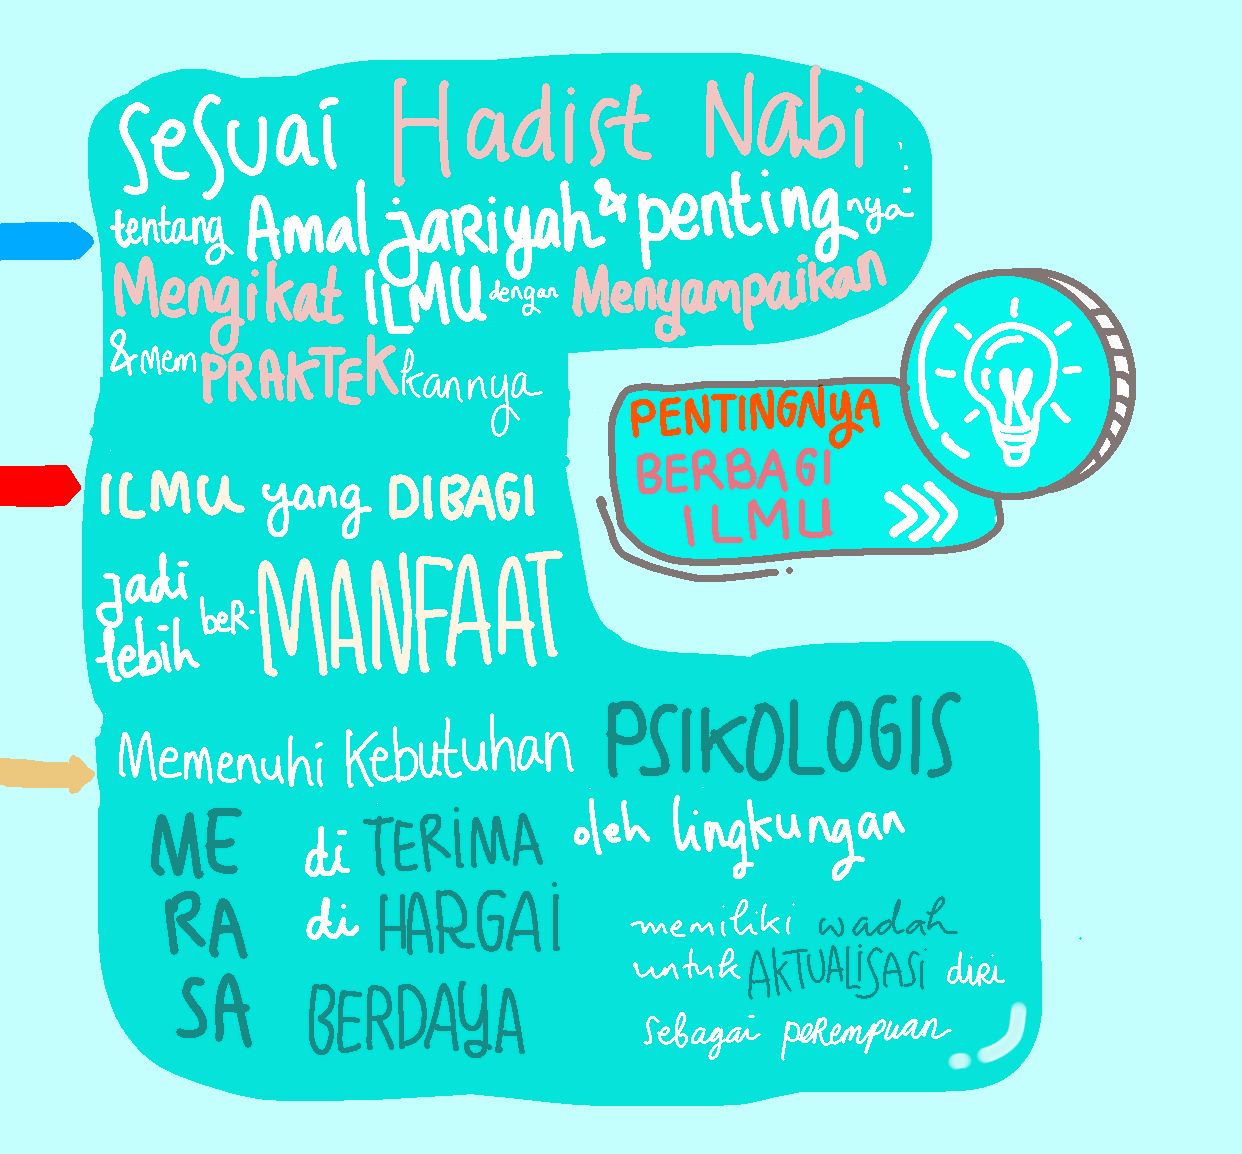 SeSuai Hadist Nabi
tentang Amal jaRiyah & pentingnya
Mengikat ILMU dengan Menyampaikan
& MemPRAKTEKkannya
PENTINGNYA
BERBAGI
ILMU
ILMU yang DIBAGI
jadi
lebih beR-MANFAAT
Memenuhi Kebutuhan PSIKOLOGIS
MERASA
di TERIMA oleh lingkungan
di HARGAI
BERDAYA
memiliki wadah
untuk AKTUALISASI diRi
sebagai peRempuan